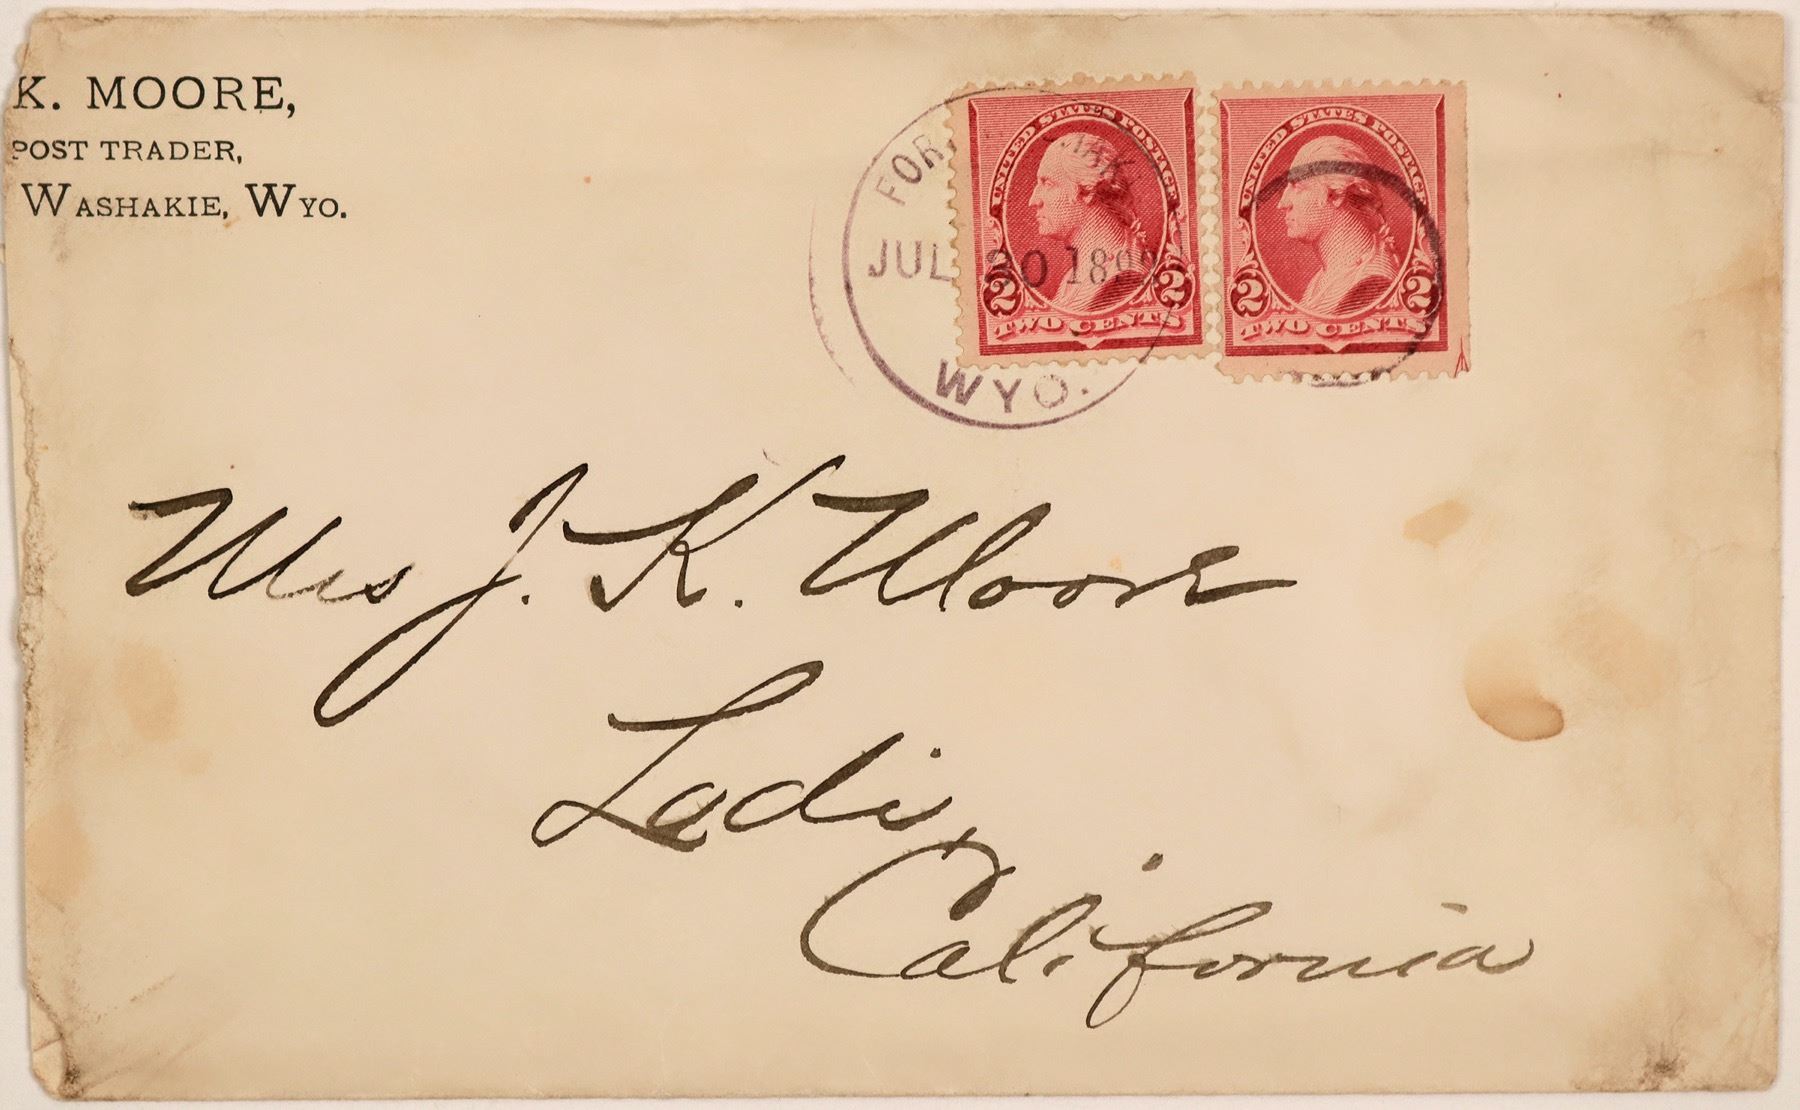 K. MOORE,
POST TRADER,
WASHAKIE, WYO.
JUL 1892
WYO.
UNITED STATES POSTAGE
2 2
TWO CENTS
UNITED STATES POSTAGE
2 2
TWO CENTS
Mrs J. K. Moore
Lodi,
California